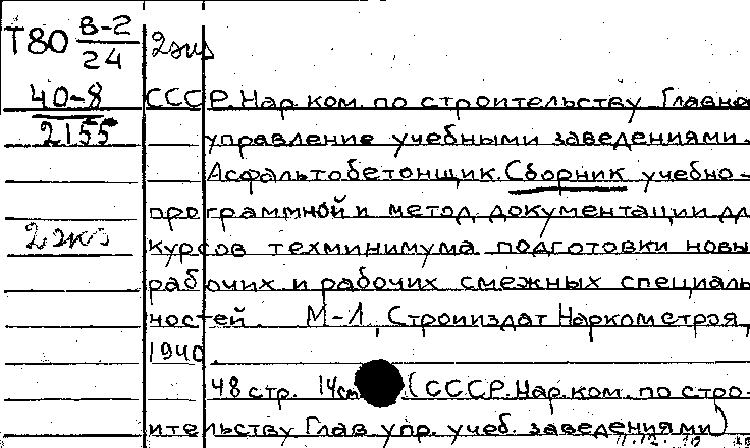 Т80 В-2/24 2экз
40-8 СССР. Нар. ком. по строительству Главно
2155 управление учебными заведениями.
Асфальтобетонщик. Сборник учебно-
программной и метод. документации дл
2 экз курсов техминимума подготовки новы
рабочих и рабочих смежных специаль
ностей. М-Л, Стройиздат Наркомстроя,
1940.
48 стр. 14см (СССР. Нар. ком. по стро-
ительству Глав. упр. учеб. заведениями)